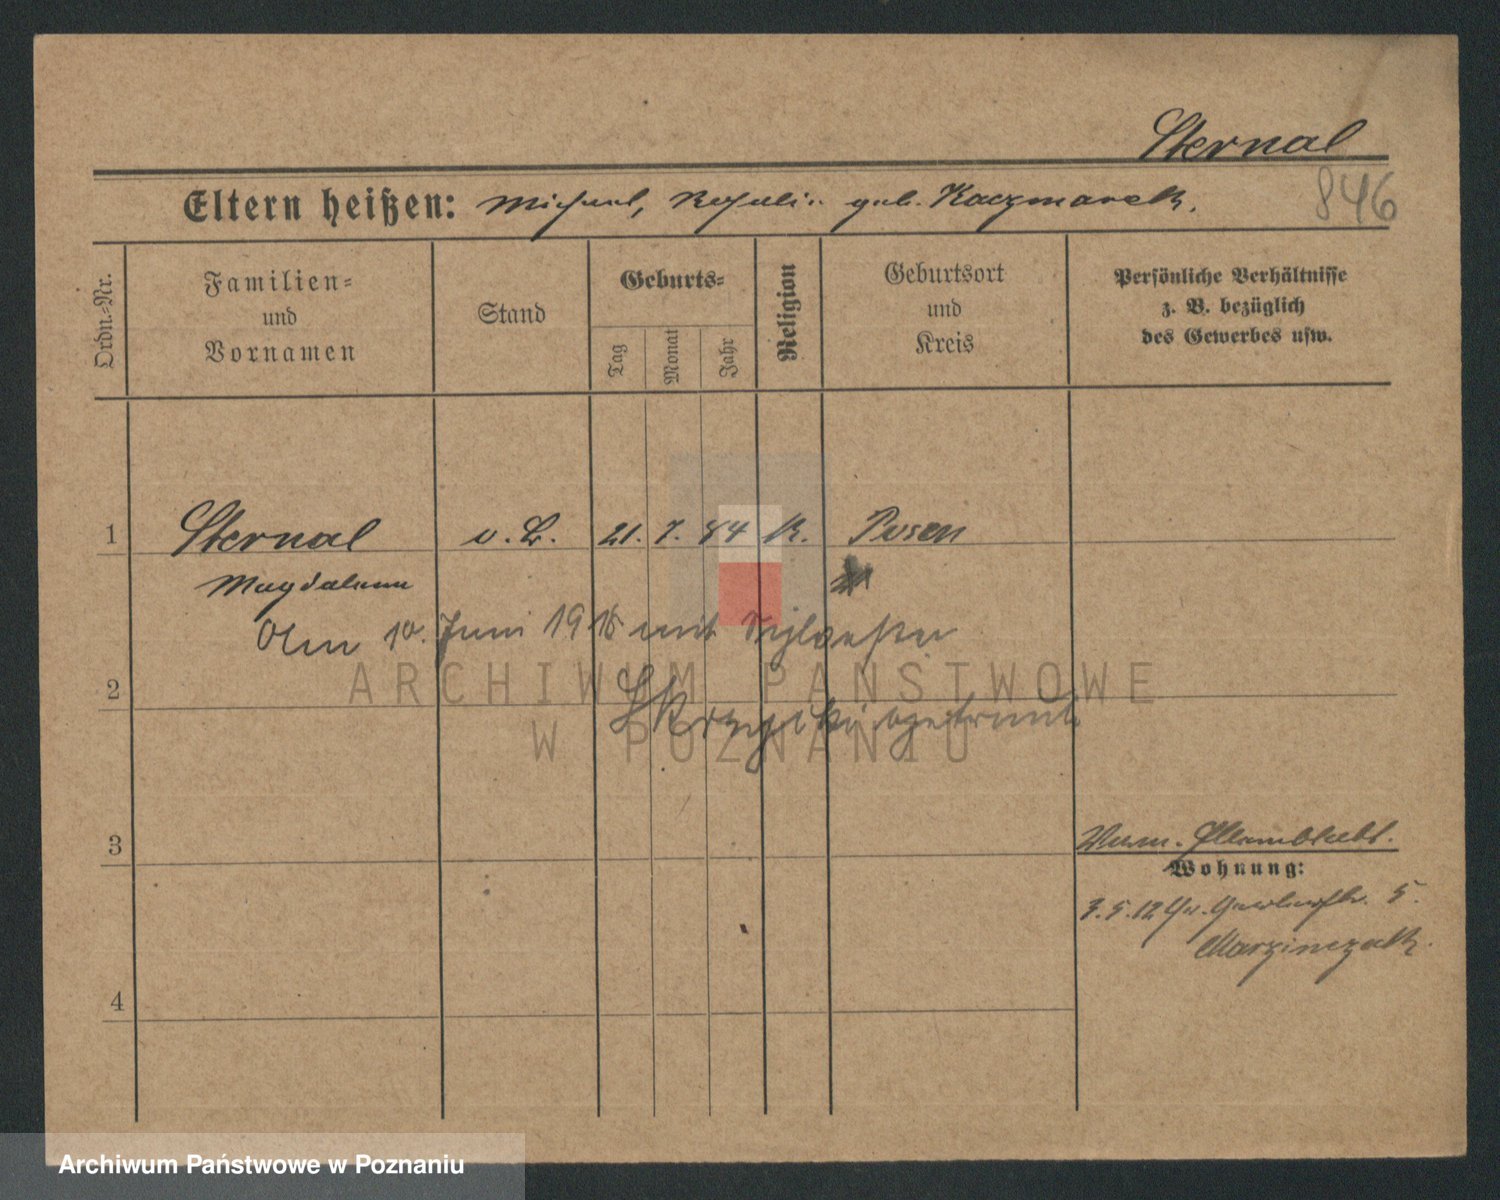 Sternal
846
Eltern heißen: Michael, Rosalie geb. Kaczmarek.
Ordn.-Nr.
Familien-
und
Vornamen
Stand
Geburts-
Tag
Monat
Jahr
Religion
Geburtsort
und
Kreis
Persönliche Verhältnisse
z. B. bezüglich
des Gewerbes usw.
1 Sternal o. B. 21. 7. 84 K. Posen
Magdalena
Am 10. Juni 1916 mit Sylvester
2
getraut
ARCHIWUM PAŃSTWOWE
W POZNANIU
3
Wohnung:
3.5.12 5.
Marzinczak.
4
Archiwum Państwowe w Poznaniu